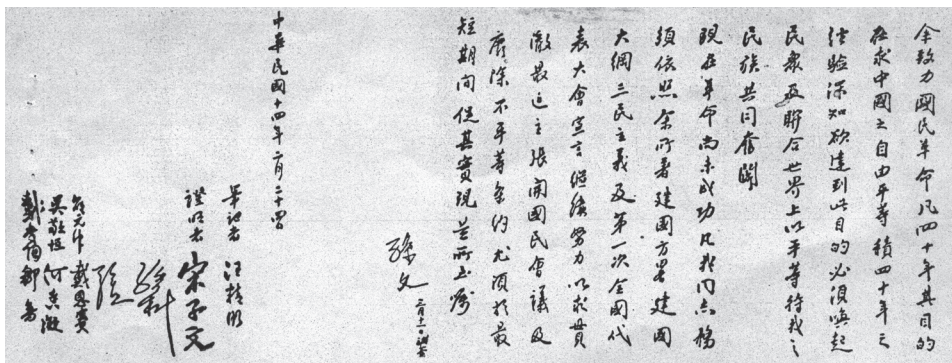 余致力國民革命凡四十年其目的
在求中國之自由平等積四十年之
經驗深知欲達到此目的必須喚起
民衆及聯合世界上以平等待我之
民族共同奮鬬
現在革命尚未成功凡我同志務
須依照余所著建國方畧建國
大綱三民主義及第一次全國代
表大會宣言繼續努力以求貫
澈最近主張開國民會議及
廢除不平等条約尤須於最
短期間促其實現是所至囑
孫文 三月十一日補簽
中華民國十四年二月二十四日
筆記者 汪精衛
證明者 宋子文
孫科
孔
戴恩賽
吳敬恒 何香凝
戴季陶 鄒魯